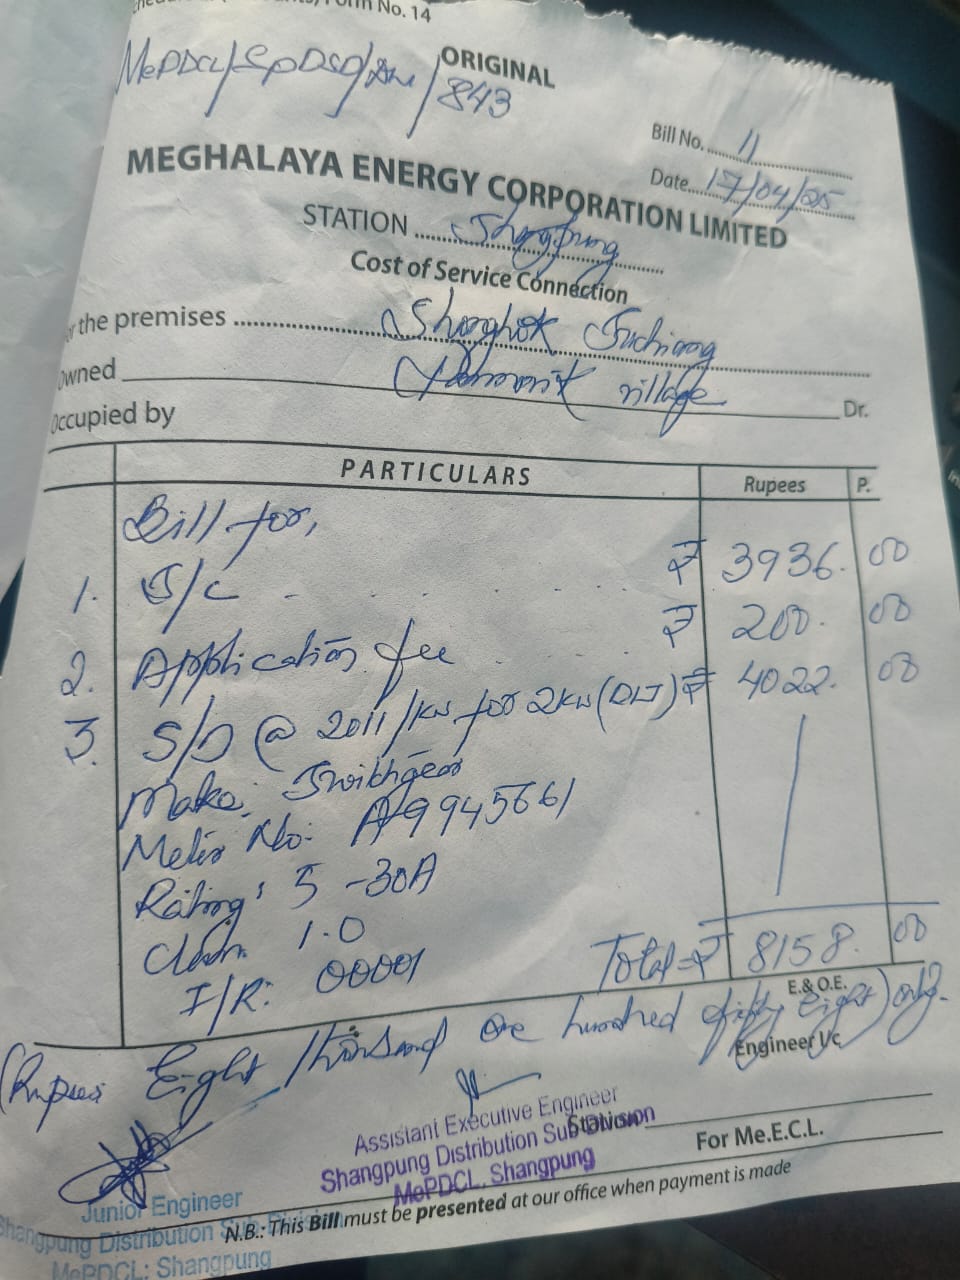 Form No. 14
ORIGINAL
MePDCL/SpDSD/
/843
Bill No. 11
Date 17/04/25
MEGHALAYA ENERGY CORPORATION LIMITED
STATION Shangpung
Cost of Service Connection
the premises Suchiang
Owned village Dr.
Occupied by
PARTICULARS Rupees P.
Bill for,
1. S/C ₹ 3936.00
2. Application fee ₹ 200.00
3. S/D @ 2011/kw for 2kw (DLT) ₹ 4022.00
Make: Switchgear
Meter No: A9945661
Rating: 5-30A
Class 1.0
I/R: 00001
Total = ₹ 8158.00
E.& O.E.
(Rupees Eight thousand one hundred fifty Eight) only.
Engineer I/c
Assistant Executive Engineer
Shangpung Distribution Sub Division
MePDCL, Shangpung
Station
For Me.E.C.L.
Junior Engineer
Shangpung Distribution Sub Division
MePDCL: Shangpung
N.B.: This Bill must be presented at our office when payment is made